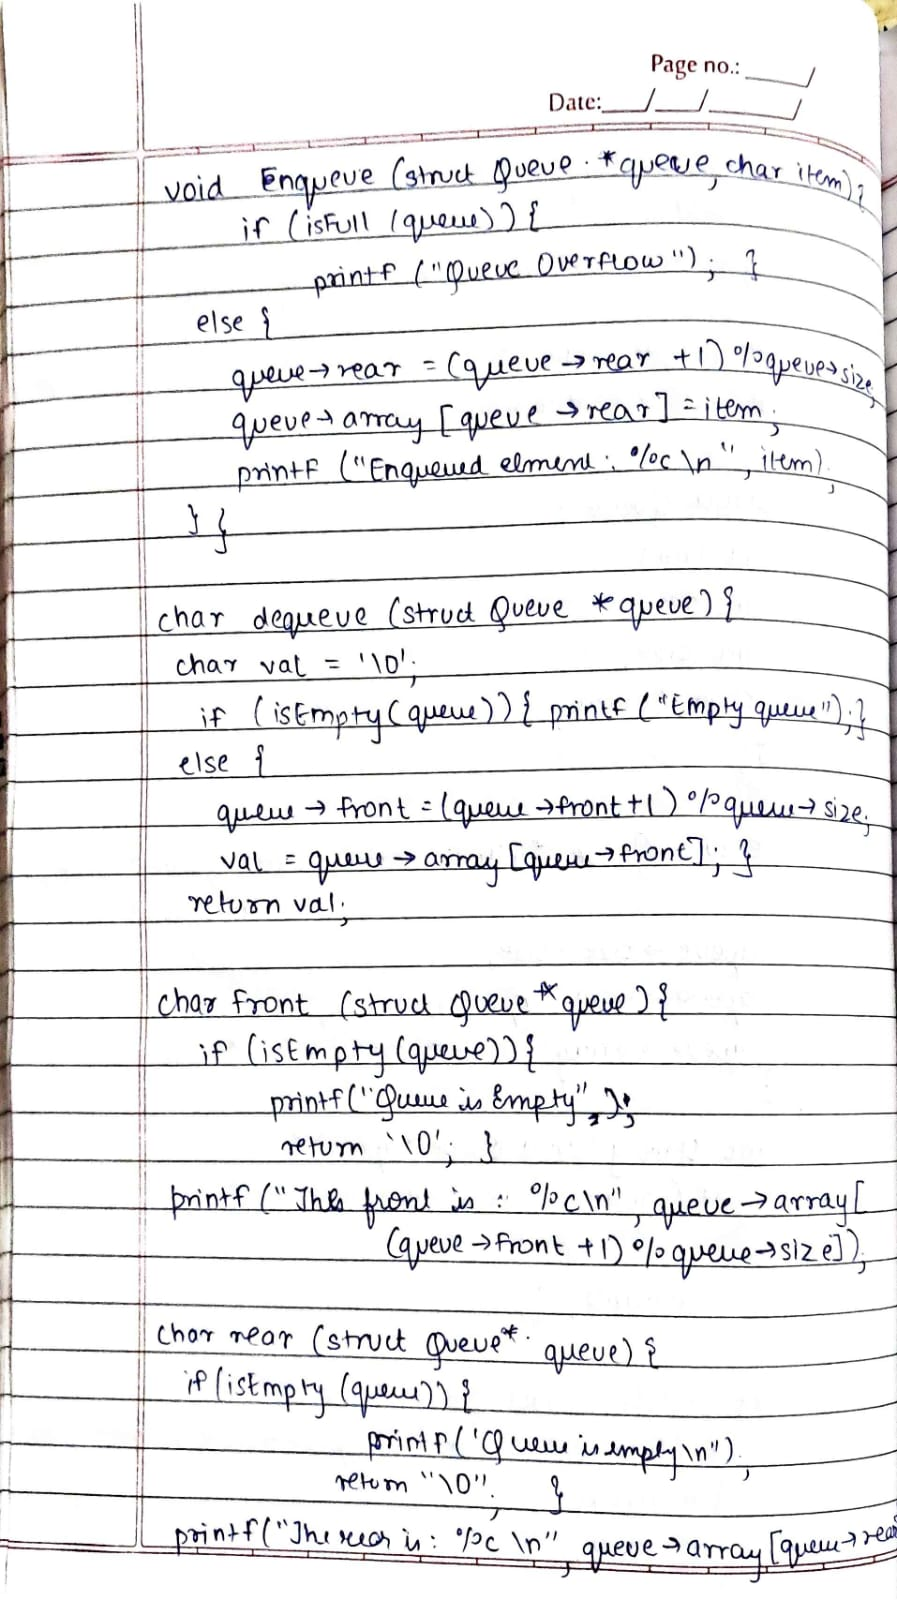 Page no.:
Date:
void Enqueue (struct Queue *queue, char item){
if (isFull (queue)) {
printf ("Queue Overflow"); }
else {
queue→rear = (queue →rear +1) %queue→size;
queue→array [queue →rear] = item;
printf ("Enqueued elment : %c \n", item);
} }
char dequeue (struct Queue *queue) {
char val = '\0';
if (isEmpty (queue)) { printf ("Empty queue"); }
else {
queue → front = (queue →front +1) %queue→ size;
val = queue → array [queue→front]; }
return val;
char front (struct Queue *queue) {
if (isEmpty (queue)) {
printf("Queue is Empty", );
return '\0'; }
printf ("The front is : %c\n", queue →array[
(queue →front +1) %queue→size]);
char rear (struct Queue* queue) {
if (isEmpty (queue)) {
printf ('Queue is empty\n");
return "\0"; }
printf("The rear is: %c \n", queue →array [queue→rear